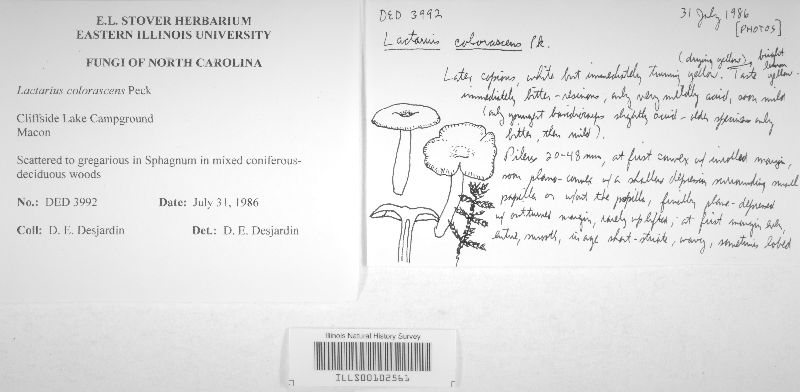 E.L. STOVER HERBARIUM
EASTERN ILLINOIS UNIVERSITY
FUNGI OF NORTH CAROLINA
Lactarius colorascens Peck
Cliffside Lake Campground
Macon
Scattered to gregarious in Sphagnum in mixed coniferous-
deciduous woods
No.: DED 3992 Date: July 31, 1986
Coll: D. E. Desjardin Det.: D. E. Desjardin
DED 3992 31 July 1986
[PHOTOS]
Lactarius colorascens Pk.
(drying yellow), bright
lemon
Latex copious, white but immediately turning yellow. Taste yellow-
immediately bitter-resinous, only very mildly acrid, soon mild
(only youngest basidiocarps slightly acrid - older specimens only
bitter, then mild).
Pileus 20-48 mm, at first convex w/ inrolled margin,
soon plano-convex w/ a shallow depression surrounding small
papilla or w/out the papilla, finally plane-depressed
w/ outturned margin, rarely uplifted; at first margin
entire, smooth, in age short-striate, wavy, sometimes lobed
Illinois Natural History Survey
ILLS00102561